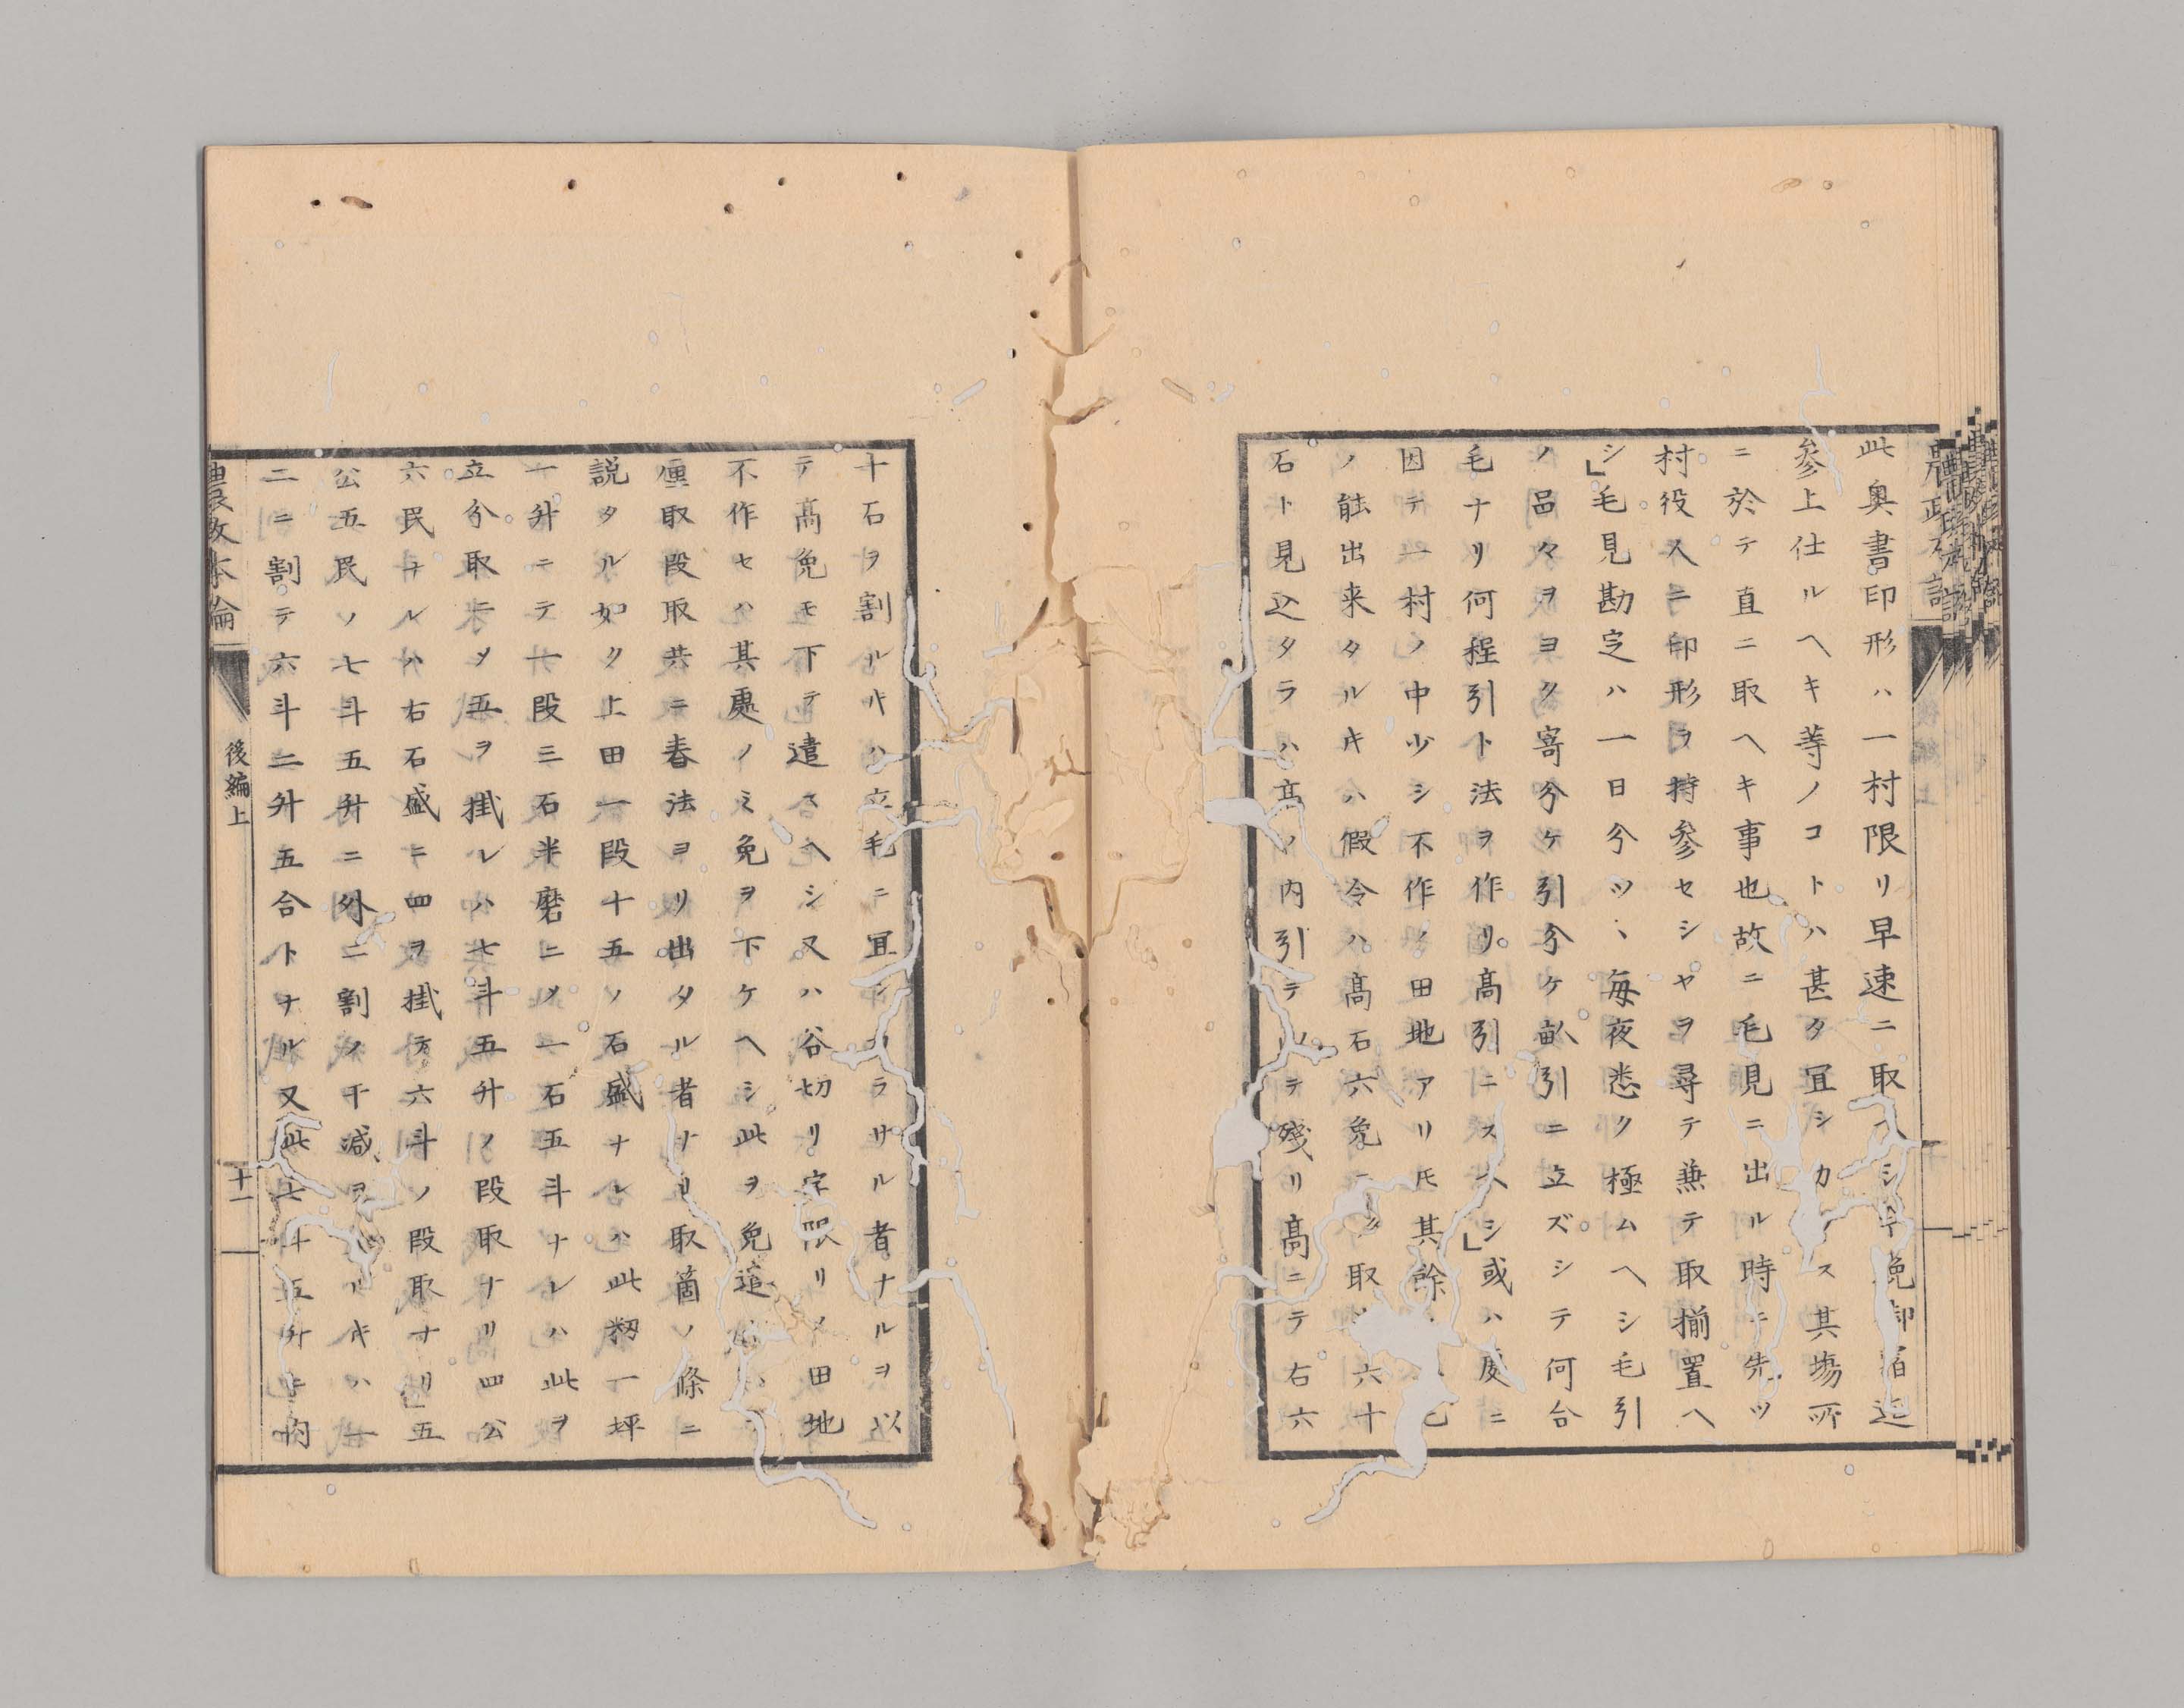 此奥書印形ハ一村限リ早速ニ取シ早晩御宿迄
參上仕ルヘキ等ノコトハ甚タ冝シカス其塲所
ニ於テ直ニ取ヘキ事也故ニ毛見ニ出ル時ニ先ツ
村役人ニ印形ヲ持參セシヤヲ尋テ兼テ取揃置ヘ
シ」毛見勘定ハ一日分ツヽ毎夜悉ク極ムヘシ毛引
ノ品々ヲヨク寄分ケ引分ケ畝引ニ立ズシテ何合
毛ナリ何程引ト法ヲ作リ髙引ニスヘシ」或ハ處ニ
因テ一村ノ中少シ不作ノ田地アリ𪜈其餘
ノ能出来タルキハ假令ハ髙石六免ニ取六十
石ト見込タラハ髙ノ内引テシテ残リ髙ニテ右六
十石ヲ割ルキハ立毛ニ冝シカラサル者ナルヲ以
テ髙免モ下テ遣スヘシ又ハ谷切リ字限リメ田地
不作セハ其處ノミ免ヲ下ケヘシ此ヲ免違
厘取段取共ニ春法ヨリ出タル者ナリ取箇ノ條ニ
説タル如ク上田一段十五ノ石盛ナレハ此籾一坪
一升ニテ一段三石半磨ニメ一石五斗ナレハ此ヲ
立分取ニメ五ヲ掛レハ七斗五升ノ段取ナリ四公
六民ナルハ右石盛ニ四ヲ掛テ六斗ノ段取ナリ五
公五民ノ七斗五升ニ外ニ割ノ干減ヲルキハ一
二ニ割テ六斗二升五合トナル又此七斗五升ヨ内
農政本論
後編上
十一